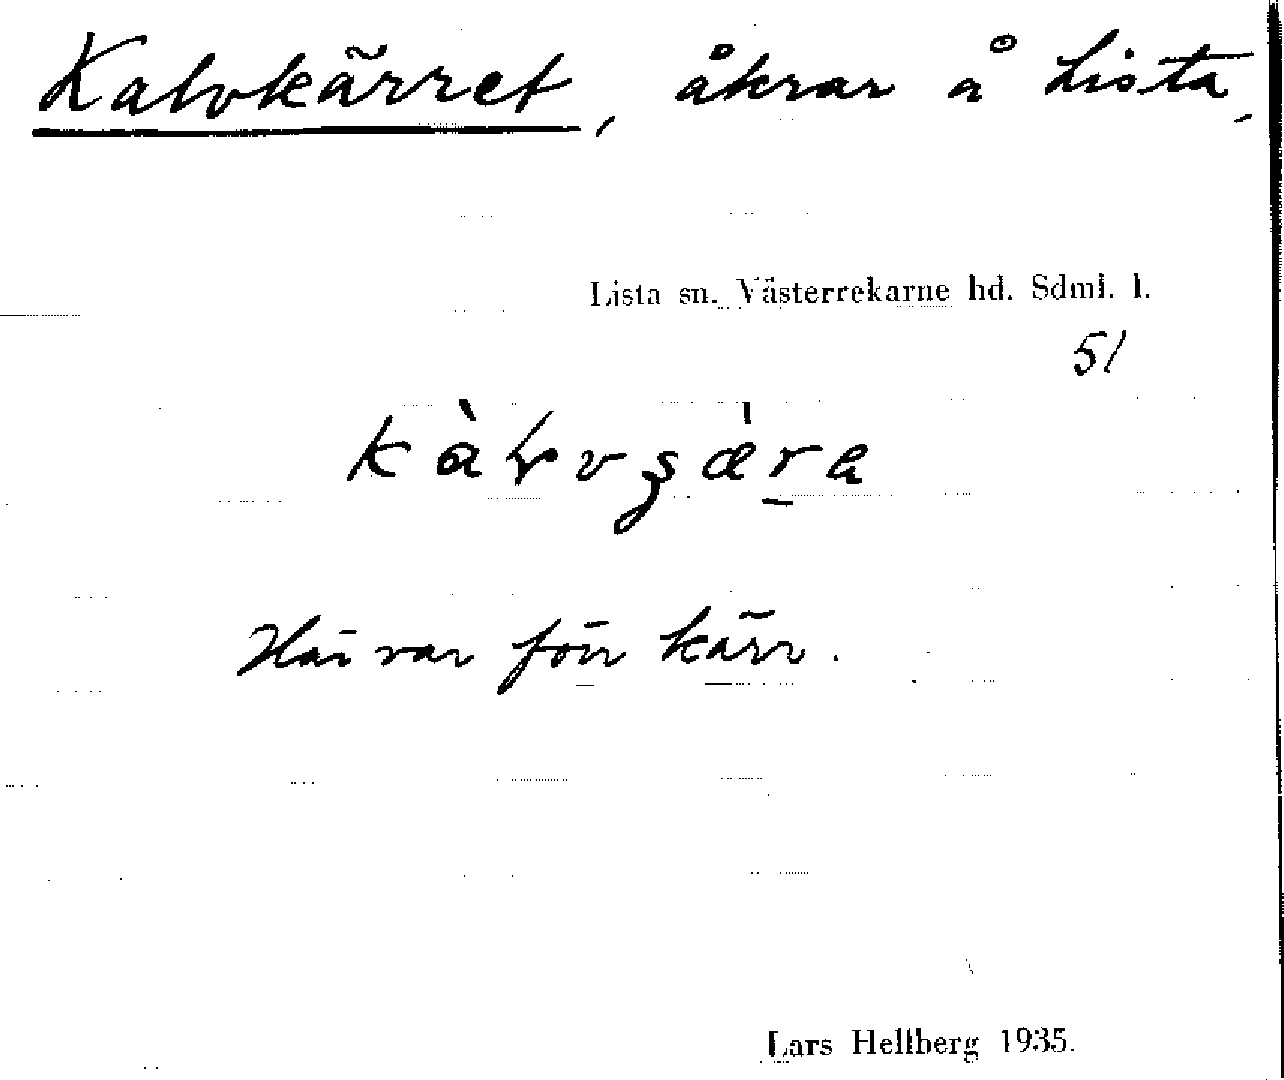 Kalvkärret, åkrar å Lista,
Lista sn. Västerrekarne hd. Sdml. l.
51
Här var förr kärr.
Lars Hellberg 1935.